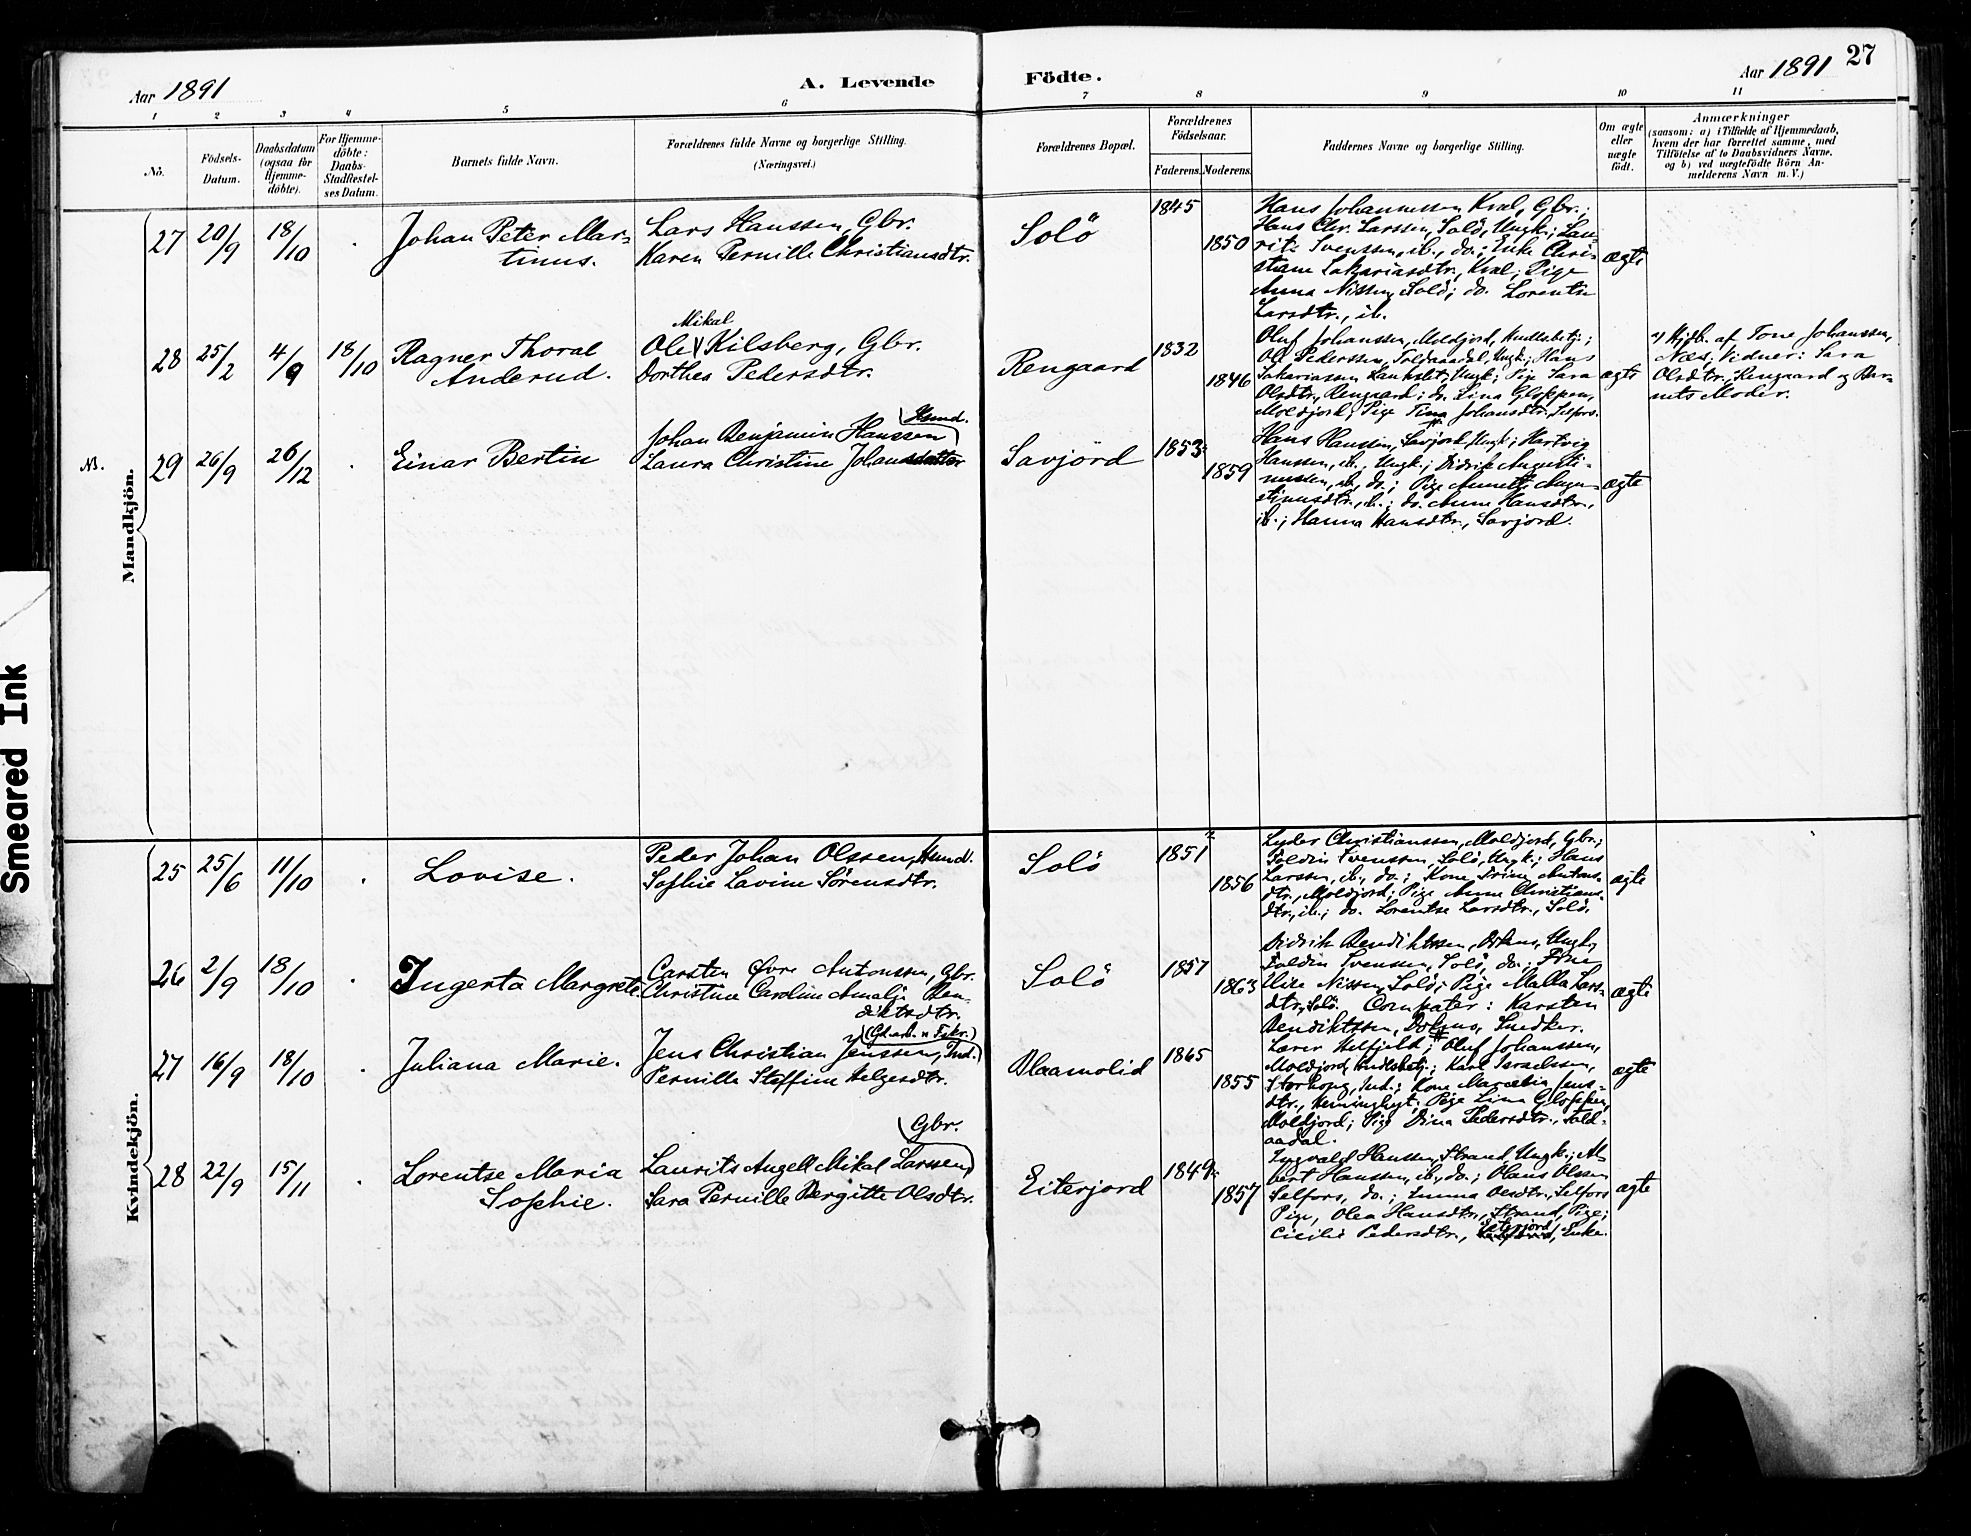 27
Aar 1891
A. Levende
Födte.
Aar 1891
1 2 3 4 5 6 7 8 9 10 11
No.
Födsels-
Datum.
Daabsdatum
(ogsaa för
Hjemme-
döbte).
For Hjemme-
döbte:
Daabs-
Stadfestel-
ses Datum.
Barnets fulde Navn.
Forældrenes fulde Navne og borgerlige Stilling.
(Næringsvei.)
Forældrenes Bopæl.
Forældrenes
Födselsaar.
Faderens. Moderens.
Faddernes Navne og borgerlige Stilling.
Om ægte
eller
uægte
födt.
Anmærkninger
(saasom: a) i Tilfælde af Hjemmedaab,
hvem der har forrettet samme, med
Tilföielse af to Daabsvidners Navne.
og b) ved uægtefödte Börn An-
melderens Navn m. V.)
Mandkjön.
27 20/9 18/10
Johan Peter Mar-
tinus.
Lars Hanssen, Gbr.
Karen Pernille Christiansdtr.
Solö
1845
1850
Hans Johannessen Kval, Gbr.;
Hans Chr. Larssen, Solö, Ungk.; Lau-
ritz Svenssen, ib., do.; Enke Chri-
stiane Sakariasdtr., Kval; Pige
Anna Nissen, Solö; do. Lorentse
Larsdtr., ib.
ægte
28 25/2 4/9 18/10
Ragner Thoral
Anderud.
Mikal
Ole Kilsberg, Gbr.
Dorthea Pedersdtr.
Rengaard
1832
1846
Oluf Johanssen, Moldjord,
Ole Pederssen, Ungk.; Hans
Sakariassen Ungk.; Pige Sara
Olsdtr., Rengaard; do. Lina Gloppen,
Moldjord; Pige Tina Johansdtr., Selfors.
ægte
Hjdb. af Tone Johanssen,
Næs; Vidner: Sara
Olsdtr., Rengaard og Bar-
nets Moder.
NB. 29 26/9 26/12
Einar Bertin
Husmd.
Johan Benjamin Hanssen
Laura Christine Johansdatter
Savjord
1853
1859
Hans Hanssen, Savjord, Ungk.; Hartvig
Hanssen, ib., Ungk.; Didrik Augusti-
nussen, ib., do.; Pige Annette Augu-
stinusdtr., ib.; do. Anne Hansdtr.,
ib.; Hanna Hansdtr., Savjord.
ægte
Kvindekjön.
25 25/6 11/10
Lovise.
Peder Johan Olssen, Husmd.
Sophie Lavine Sörensdtr.
Solö
1851
1856
Lyder Christianssen, Moldjord, Gbr.;
Foldin Svenssen, Solö, Ungk.; Hans
Larssen, ib., do.; Kone Antons-
dtr., Moldjord; Pige Anne Christians-
dtr., ib.; do. Lorentse Larsdtr., Solö.
ægte
26 2/9 18/10
Ingerta Margrete
Carsten Övre Antonssen, Gbr.
Christine Caroline Amalje Ben-
diktsdtr.
Solö
1857
1863
Didrik Bendiktssen, Ungk.,
Foldin Svenssen, Solö, do.; Frue
Elise Nissen, Solö; Pige Malla Lars-
dtr., Solö. Compater: Karsten
Bendiktssen, Dokmo, Snedker.
ægte
27 16/9 18/10
Juliana Marie.
Jens Christian Jenssen, Ind.
Pernille Steffine Helgesdtr.
Blaamolid
1865
1855
Lærer Helfjeld; Oluf Johanssen,
Moldjord, Karl Israelssen,
Storhaug, Ind.; Kone Marælia Jens-
dtr., Pige Lina Gloppen,
Moldjord; Pige Dina Pedersdtr.,
aadal.
ægte
28 22/9 15/11
Lorentse Maria
Sophie.
Gbr.
Laurits Angell Mikal Larssen
Sara Pernille Bergitte Olsdtr.
Eiterjord
1849
1857
Ingvald Hanssen, Strand, Ungk.; Al-
bert Hanssen, ib., do.; Hans Olssen
Selfors, do.; Emma Olsdtr., Selfors
Pige, Olea Hansdtr., Strand, Pige;
Cicilie Pedersdtr., Eiterjord, Enke.
ægte
Smeared Ink